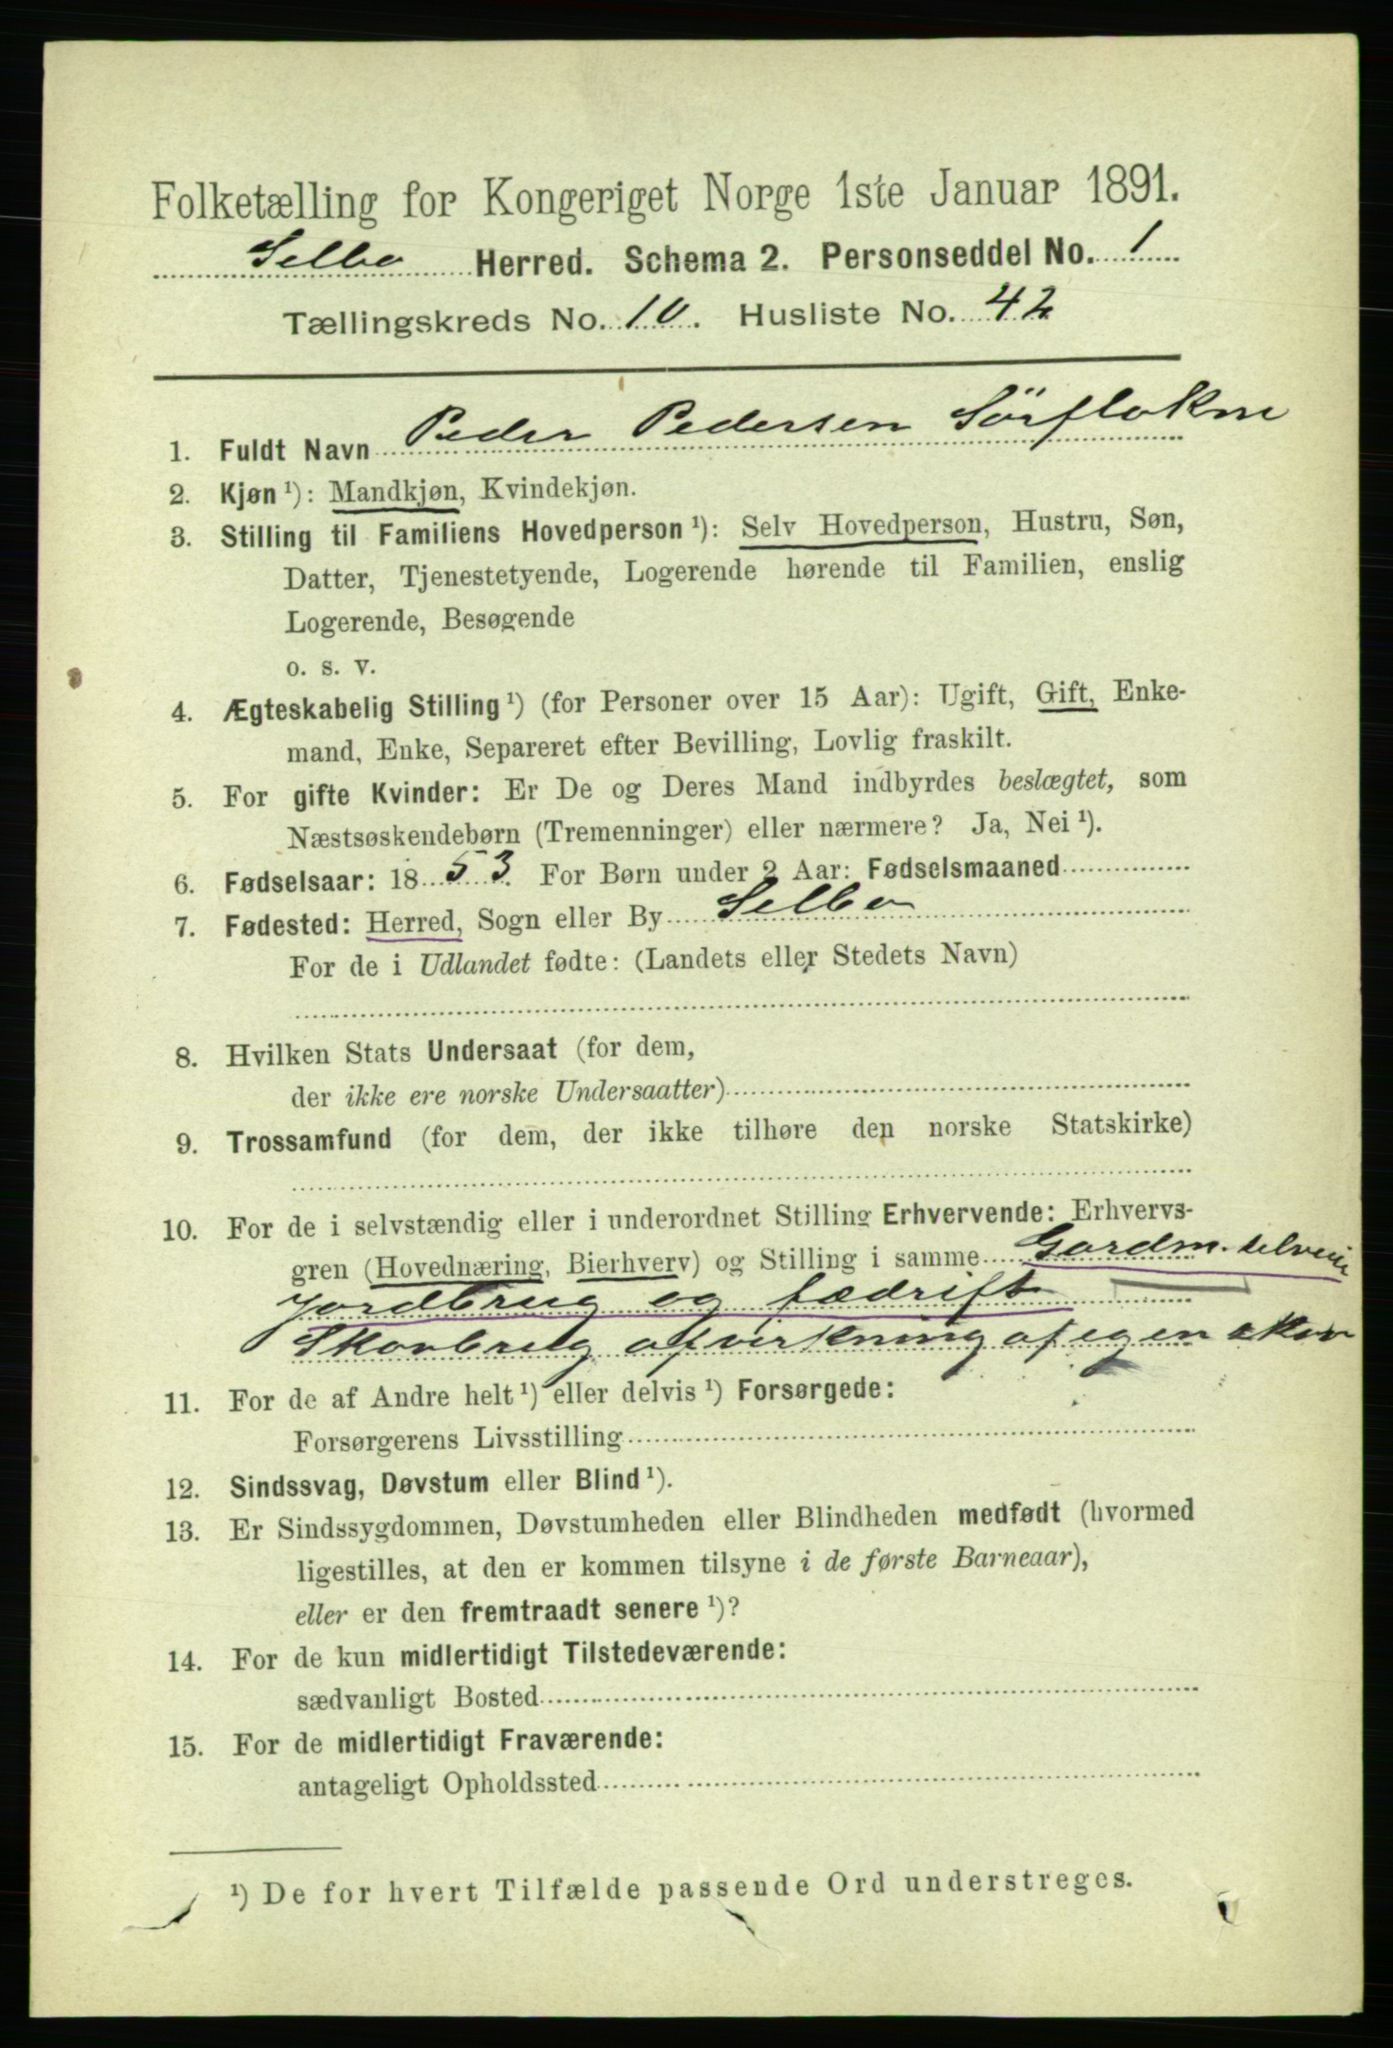 Folketælling for Kongeriget Norge 1ste Januar 1891.
Selbo Herred. Schema 2. Personseddel No. 1
Tællingskreds No. 10. Husliste No. 42
1. Fuldt Navn Peder Pedersen Sörflakne
2. Kjøn ¹): Mandkjøn, Kvindekjøn.
3. Stilling til Familiens Hovedperson ¹): Selv Hovedperson, Hustru, Søn,
Datter, Tjenestetyende, Logerende hørende til Familien, enslig
Logerende, Besøgende
o. s. v.
4. Ægteskabelig Stilling ¹) (for Personer over 15 Aar): Ugift, Gift, Enke-
mand, Enke, Separeret efter Bevilling, Lovlig fraskilt.
5. For gifte Kvinder: Er De og Deres Mand indbyrdes beslægtet, som
Næstsøskendebørn (Tremenninger) eller nærmere? Ja, Nei ¹).
6. Fødselsaar: 1853. For Børn under 2 Aar: Fødselsmaaned
7. Fødested: Herred, Sogn eller By Selbo
For de i Udlandet fødte: (Landets eller Stedets Navn)
8. Hvilken Stats Undersaat (for dem,
der ikke ere norske Undersaatter)
9. Trossamfund (for dem, der ikke tilhøre den norske Statskirke)
10. For de i selvstændig eller i underordnet Stilling Erhvervende: Erhvervs-
gren (Hovednæring, Bierhverv) og Stilling i samme Gardm. selveier
Jordbrug og fædrift
Skovbrug afvirkning af egen skov
11. For de af Andre helt ¹) eller delvis ¹) Forsørgede:
Forsørgerens Livsstilling
12. Sindssvag, Døvstum eller Blind ¹).
13. Er Sindssygdommen, Døvstumheden eller Blindheden medfødt (hvormed
ligestilles, at den er kommen tilsyne i de første Barneaar),
eller er den fremtraadt senere ¹)?
14. For de kun midlertidigt Tilstedeværende:
sædvanligt Bosted
15. For de midlertidigt Fraværende:
antageligt Opholdssted
¹) De for hvert Tilfælde passende Ord understreges.